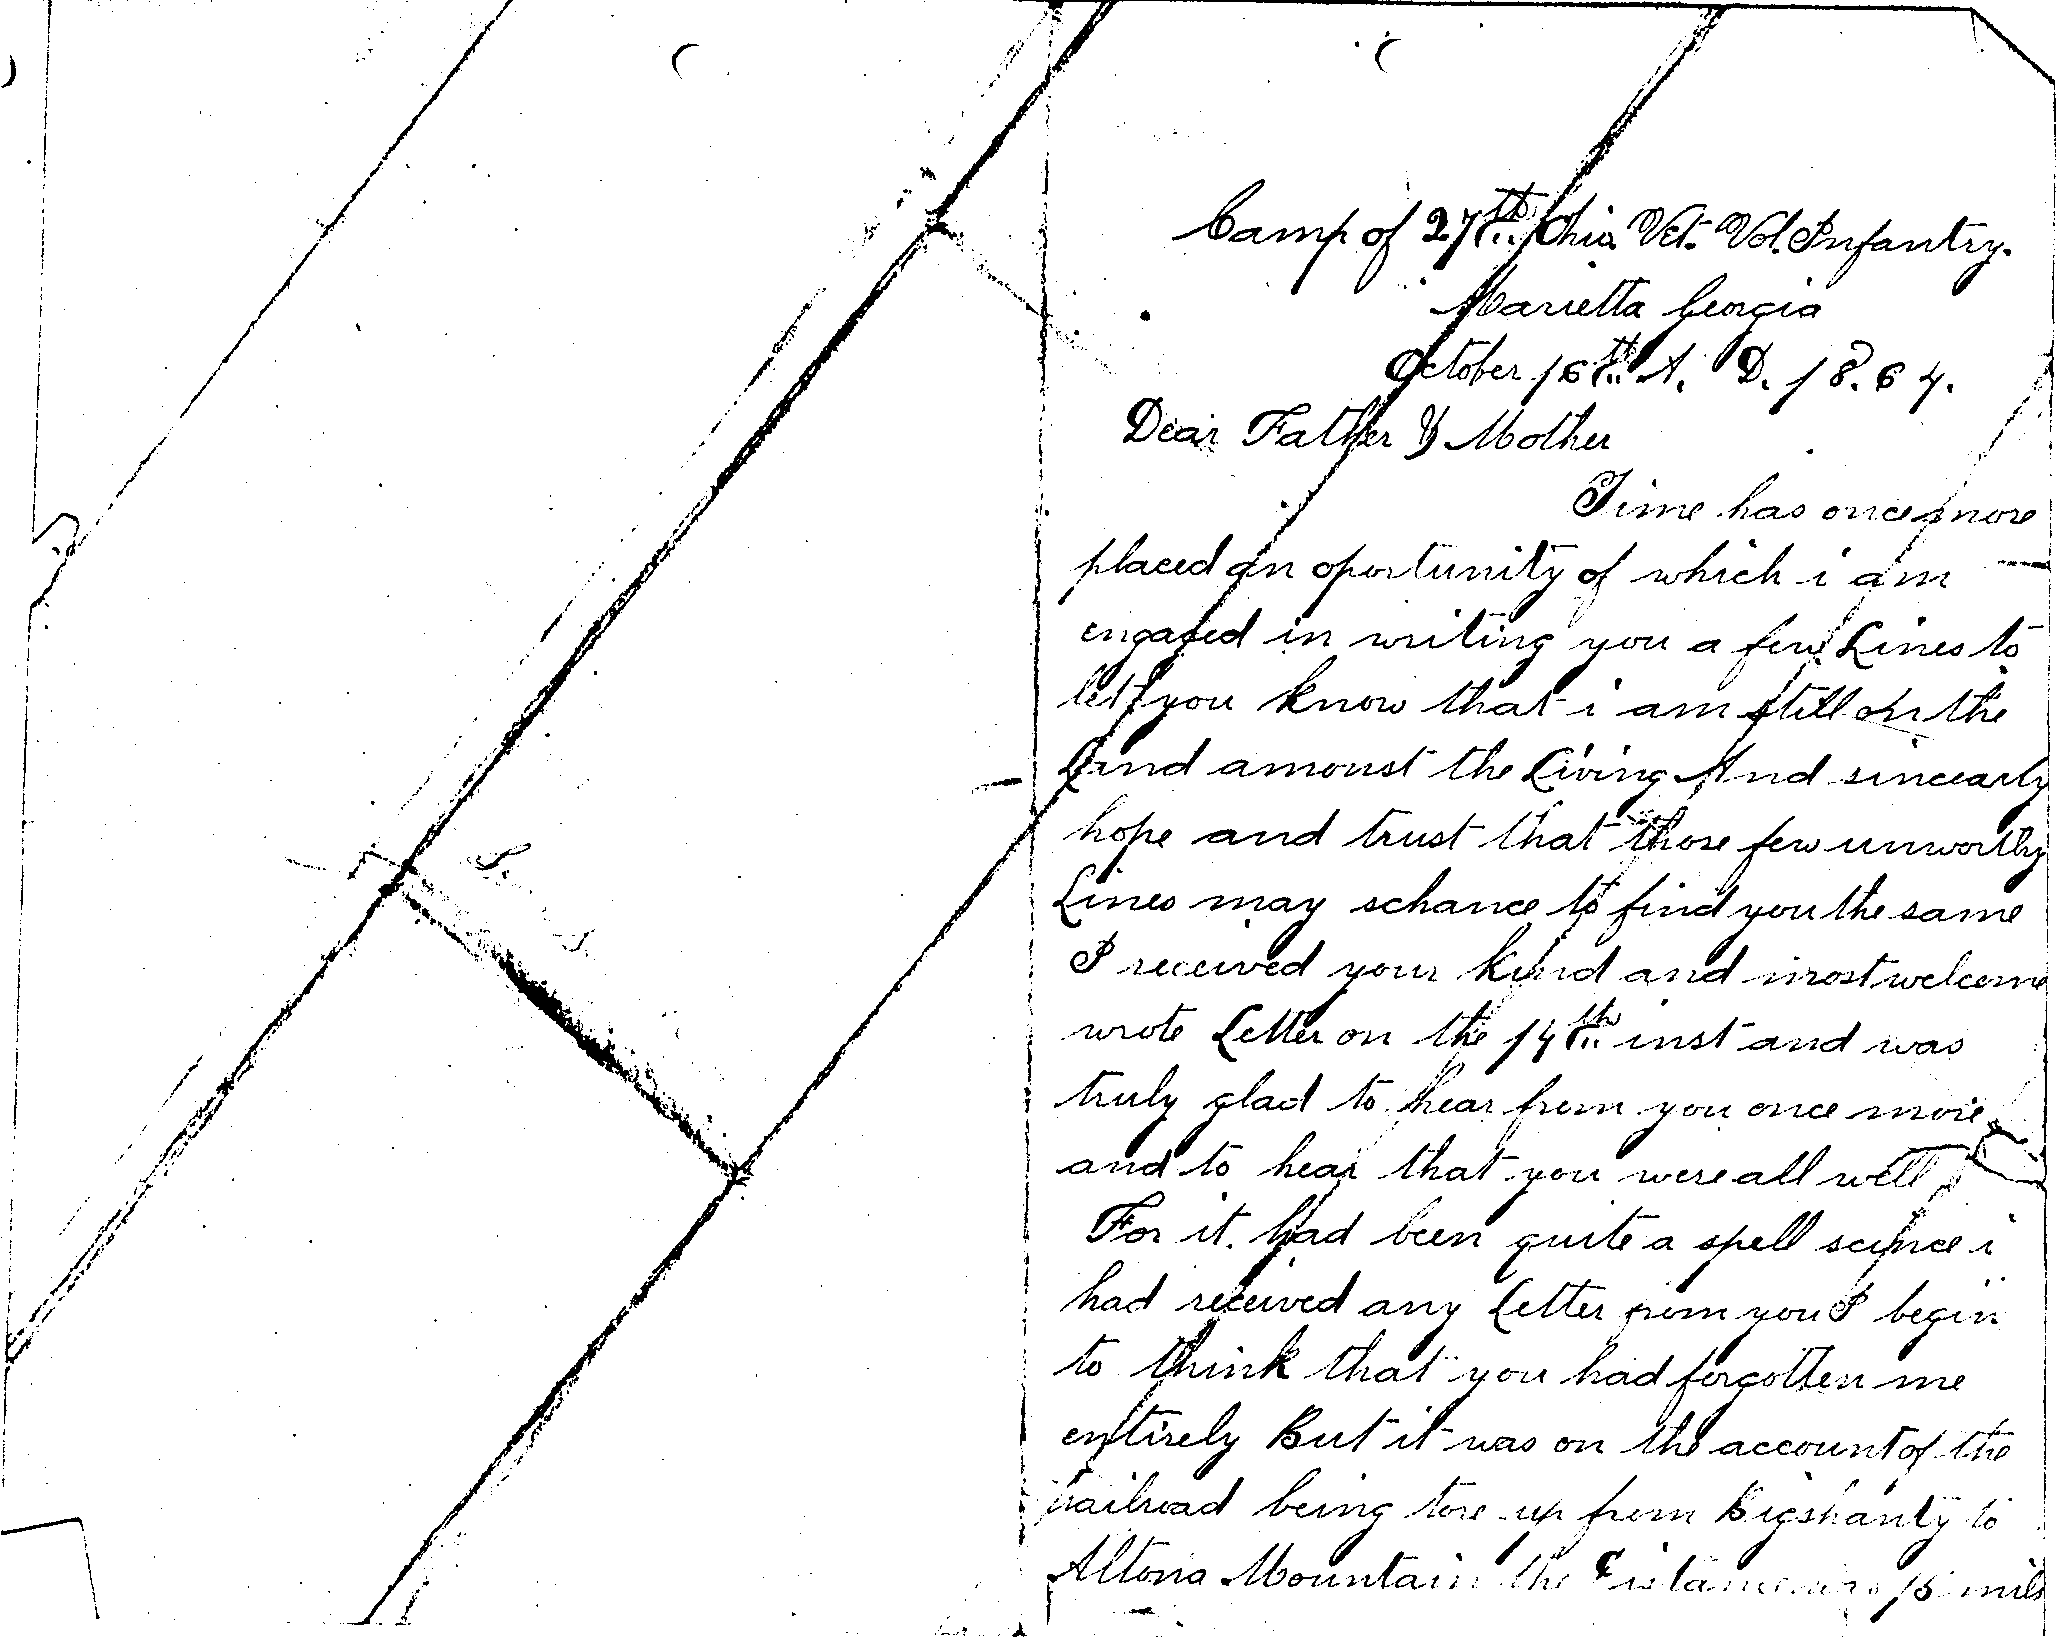 Camp of 27th Ohio Vet. Vol. Infantry.
Marietta Georgia
October 16th A. D. 18.64.
Dear Father & Mother
Time has once more
placed an oportunity of which i am
engaged in writing you a few Lines to
let you know that i am still on the
Land amonst the Living And sincearly
hope and trust that those few unworthy
Lines may schance to find you the same
I received your kind and most welcome
wrote Letter on the 14th inst and was
truly glad to hear from you once more
and to hear that you were all well
For it. had been quite a spell scince i
had received any Letter from you I begin
to think that you had forgotten me
entirely But it was on the account of the
railroad being tore up from Bigshanty to
Altona Mountain the distance 15 mils